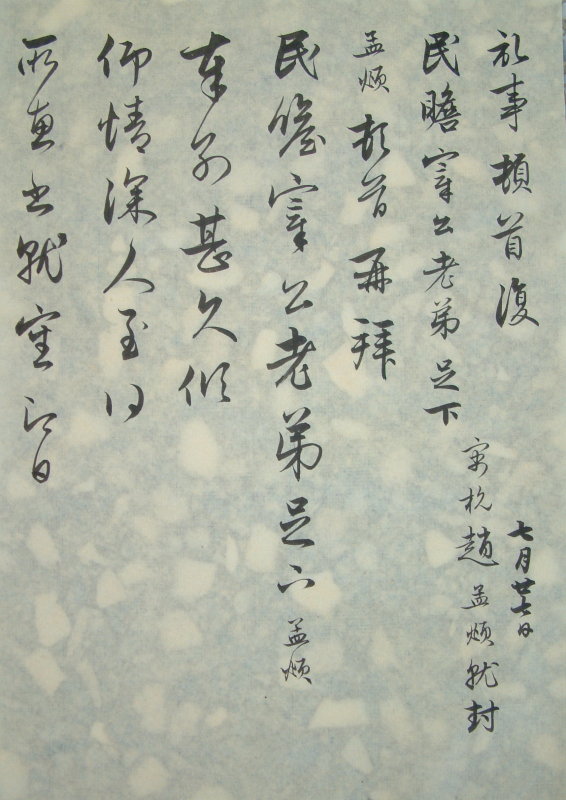 記事頓首復
民瞻宰公老弟足下
七月廿七日
寓杭趙孟頫就封
孟頫頓首再拜
民瞻宰公老弟足下孟頫
奉别甚久傾
仰情深人至得
所惠書就審即日